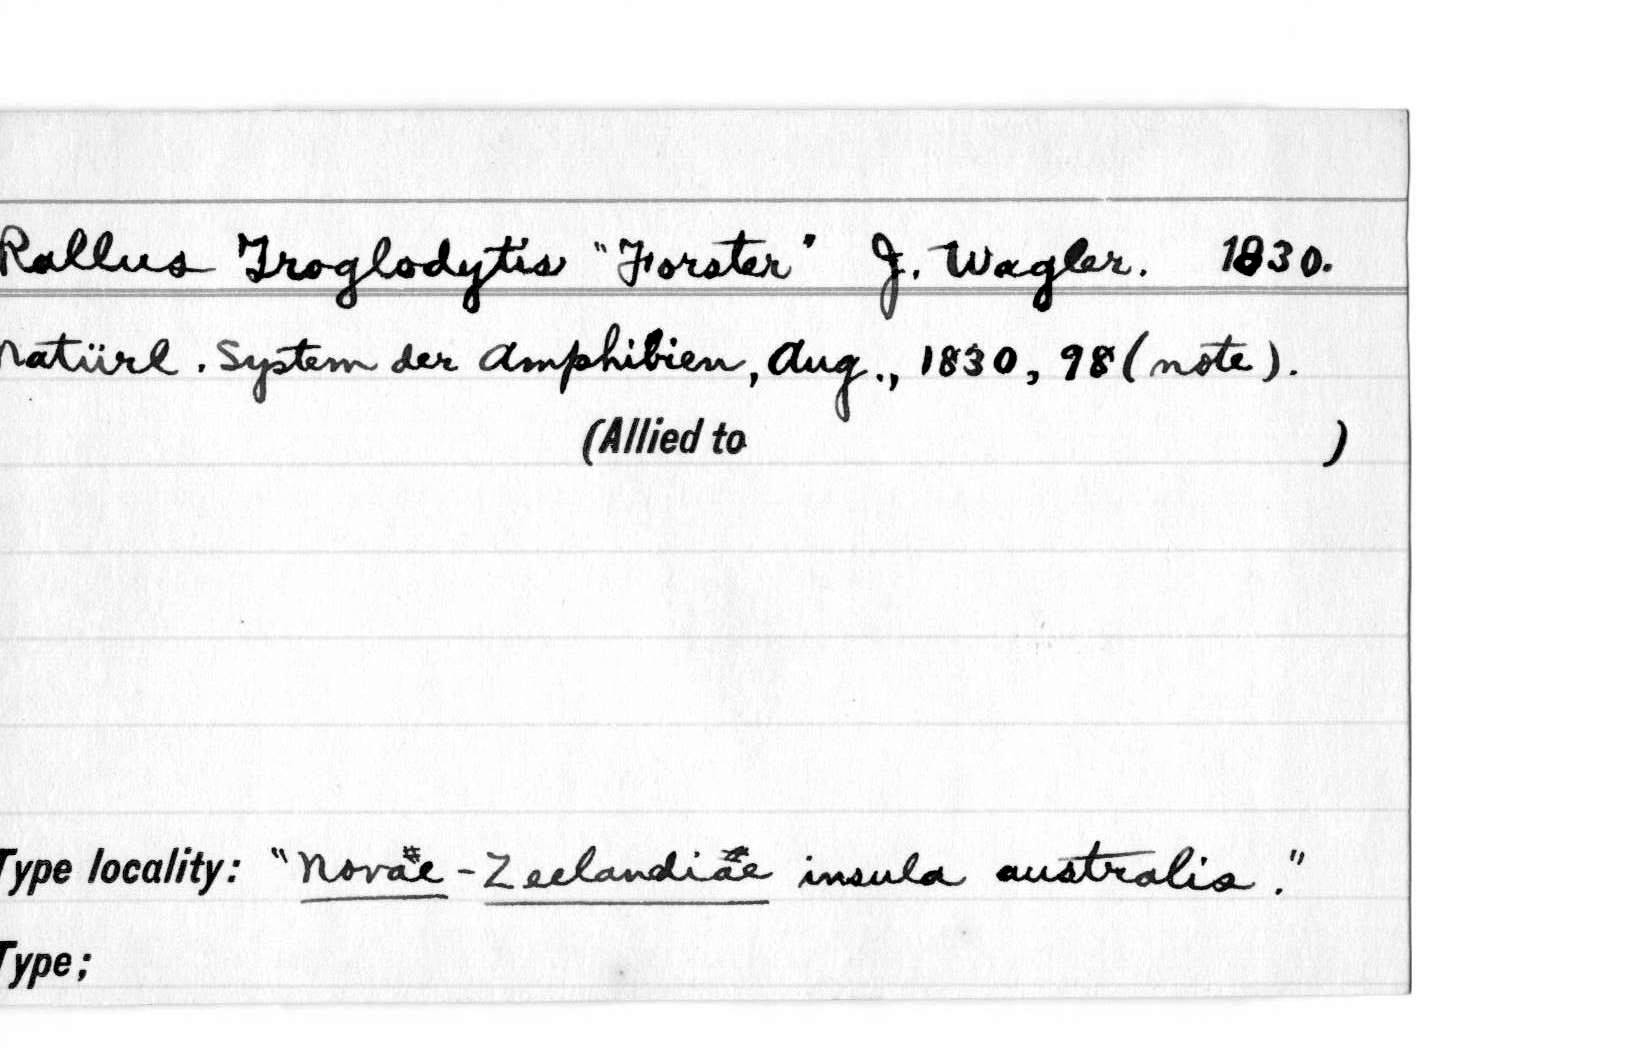 Rallus Troglodytis "Forster" J. Wagler. 1830.
Natürl. System der Amphibien, Aug., 1830, 98 (note).
(Allied to )
Type locality: "Novae-Zeelandiae insula australis."
Type;